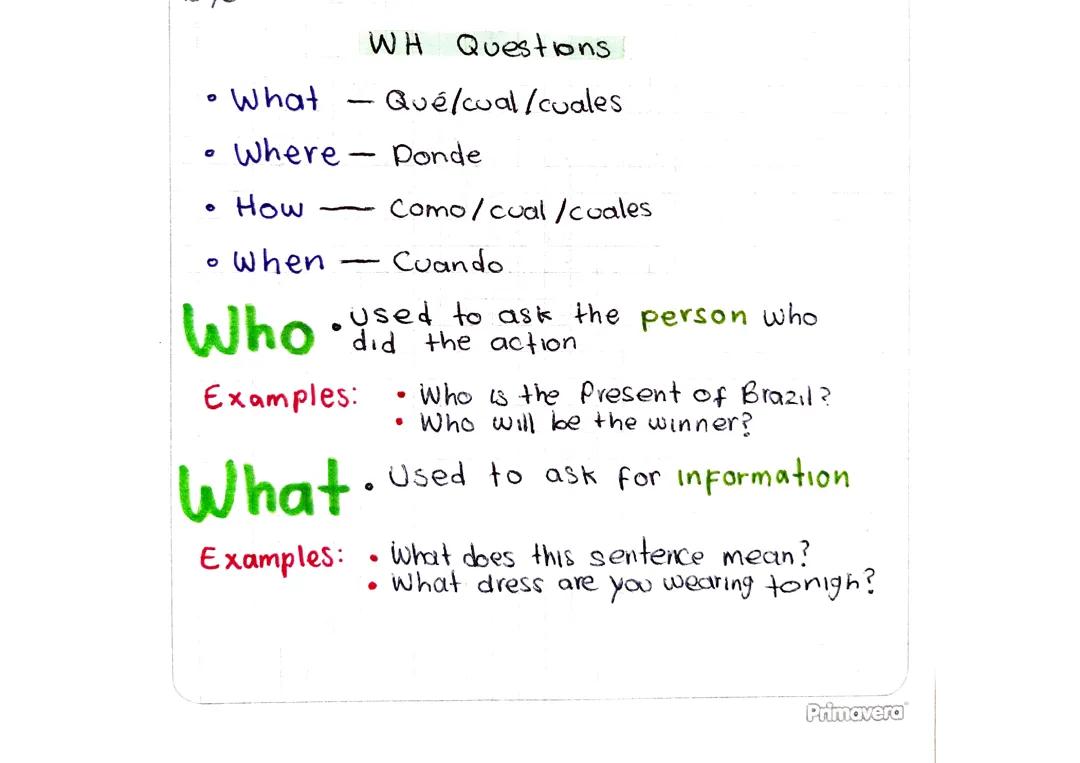 WH Questions
• What — Qué/cual/cuales
• Where — Donde
• How — Como/cual/cuales
• When — Cuando
Who • used to ask the person who
did the action
Examples: • Who is the Present of Brazil?
• Who will be the winner?
What • Used to ask for information
Examples: • What does this sentence mean?
• What dress are you wearing tonigh?
Primavera